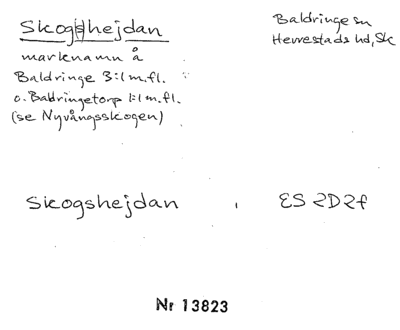 Skogshejdan
Baldringe sn
Herrestads hd, Sk
marknamn å
Baldringe 3:1 m.fl.
o. Baldringetorp 1:1 m.fl.
(se Nyvångsskogen)
Skogshejdan
ES 2D2f
Nr 13823